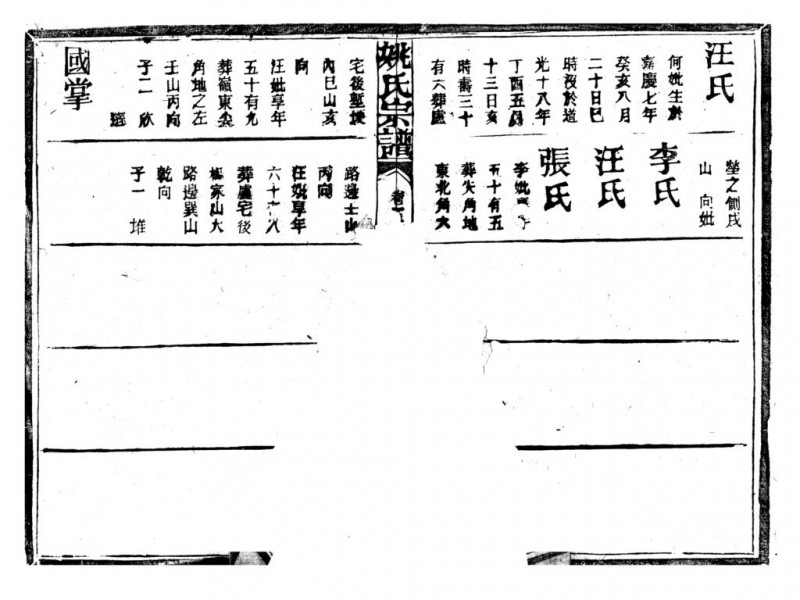 汪氏
何妣生於
嘉慶七年
癸亥八月
二十日巳
時歿於道
光十八年
丁酉五月
十三日亥
時壽三十
有六葬處
塋之側戌
山 向妣
李氏
汪氏
張氏
李妣
五十有五
葬尖角地
東北角大
姚氏宗譜
卷
宅後
內巳山亥
向
汪妣享年
五十有九
葬嶺東尖
角地之左
壬山丙向
子二 欣
國掌
路邊士山
丙向
汪妣享年
六十 八
葬盧宅後
楊家山大
路邊巽山
乾向
子一 堆